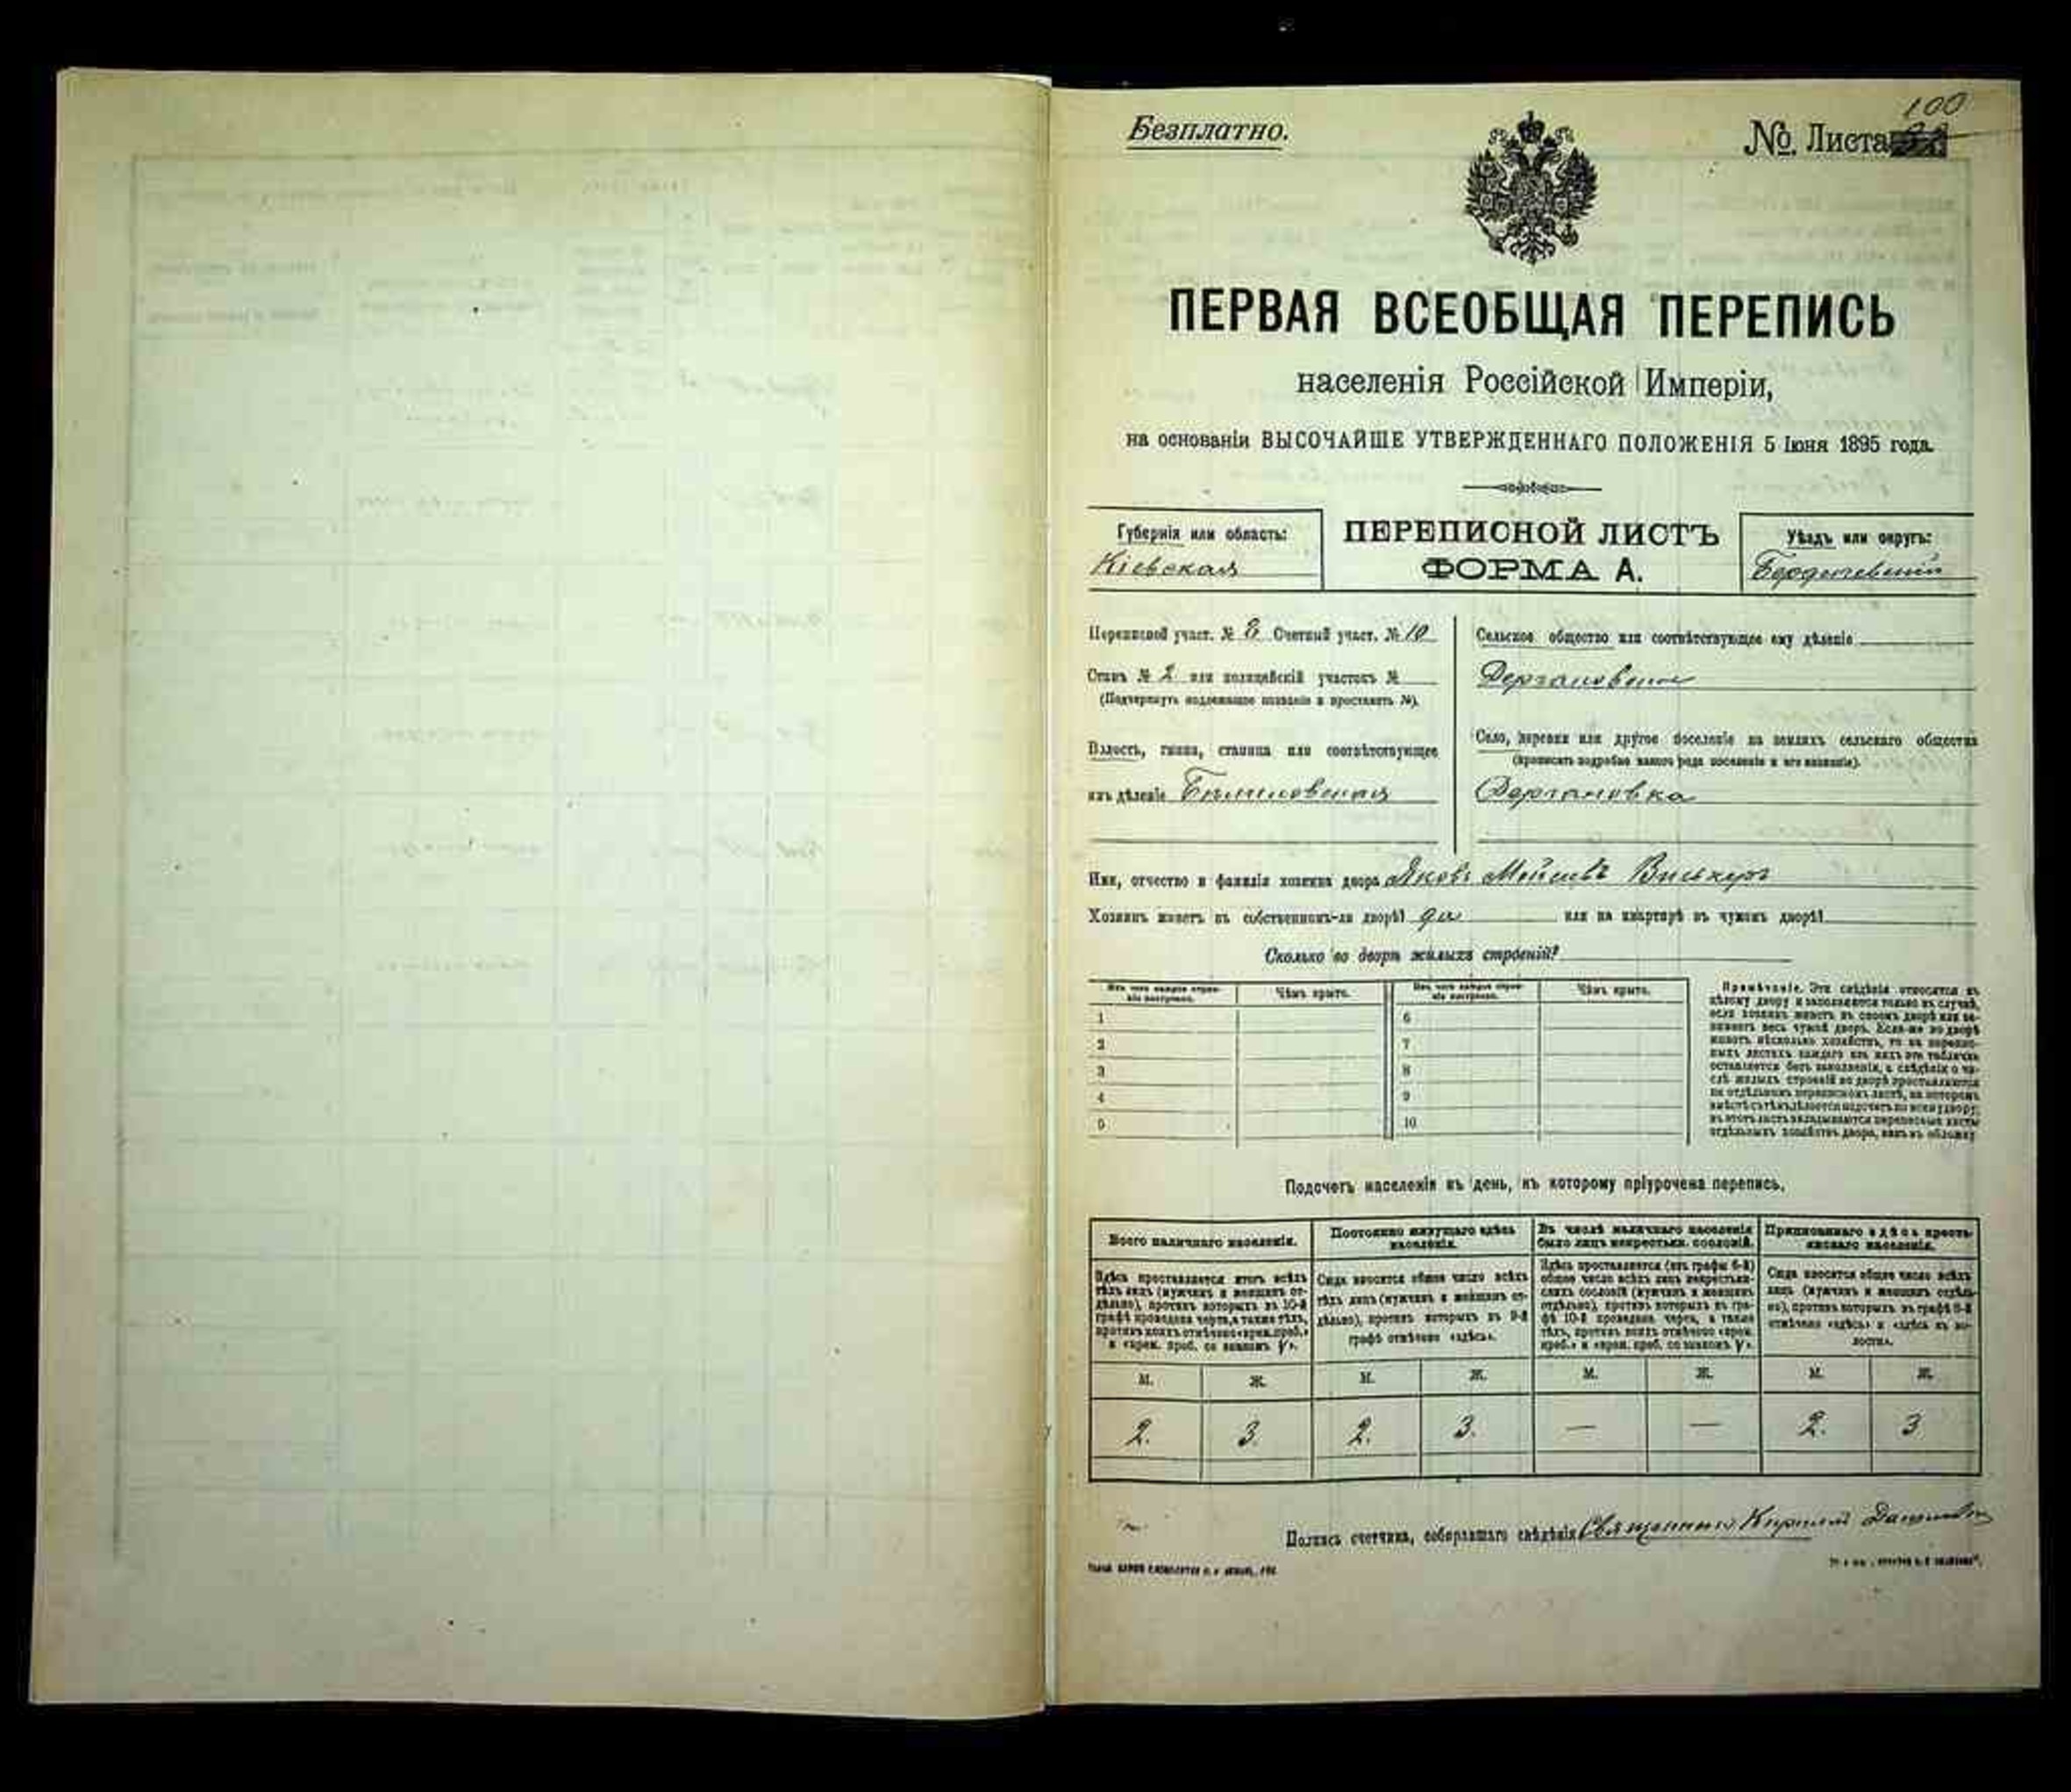 100
Безплатно.
№. Листа
ПЕРВАЯ ВСЕОБЩАЯ ПЕРЕПИСЬ
населенія Россійской Имперіи,
на основаніи ВЫСОЧАЙШЕ УТВЕРЖДЕННАГО ПОЛОЖЕНІЯ 5 Іюня 1895 года.
Губернія или область:
Кіевская
ПЕРЕПИСНОЙ ЛИСТЪ
ФОРМА А.
Уѣздъ или округъ:
Бердичевскій
Переписной участ. № 8 Счетный участ. № 10
Станъ № 2 или полицейскій участокъ №
(Подчеркнуть надлежащее названіе и проставить №).
Волость, гмина, станица или соотвѣтствующее
имъ дѣленіе
Сельское общество или соотвѣтствующее ему дѣленіе
Село, деревня или другое поселеніе на земляхъ сельскаго общества
(прописать подробно какого рода поселеніе и его названіе).
Дергановка
Имя, отчество и фамилія хозяина двора Яковъ
Хозяинъ живетъ въ собственномъ-ли дворѣ? да или на квартирѣ въ чужомъ дворѣ?
Сколько во дворѣ жилыхъ строеній?
Изъ чего каждое строеніе построено.
Чѣмъ крыто.
Изъ чего каждое строеніе построено.
Чѣмъ крыто.
1
2
3
4
5
6
7
8
9
10
Примѣчаніе. Эти свѣдѣнія относятся къ
цѣлому двору и заполняются только въ случаѣ,
если хозяинъ живетъ въ своемъ дворѣ или за-
нимаетъ весь чужой дворъ. Если-же во дворѣ
живетъ нѣсколько хозяйствъ, то на перепис-
ныхъ листахъ каждаго изъ нихъ эта табличка
оставляется безъ заполненія, а свѣдѣнія о чи-
слѣ жилыхъ строеній во дворѣ проставляются
на отдѣльномъ переписномъ листѣ, на которомъ
вмѣстѣ съ тѣмъ дѣлается подсчетъ по всему двору;
въ этотъ листъ вкладываются переписные листы
отдѣльныхъ хозяйствъ двора, какъ въ обложку.
Подсчетъ населенія въ день, къ которому пріурочена перепись.
Всего наличнаго населенія.
Здѣсь проставляется итогъ всѣхъ
тѣхъ лицъ (мужчинъ и женщинъ от-
дѣльно), противъ которыхъ въ 10-й
графѣ проведена черта, а также тѣхъ,
противъ коихъ отмѣчено «врем. преб.»
и «врем. преб. со знакомъ V».
Постоянно живущаго здѣсь
населенія.
Сюда вносится общее число всѣхъ
тѣхъ лицъ (мужчинъ и женщинъ от-
дѣльно), противъ которыхъ въ 9-й
графѣ отмѣчено «здѣсь».
Въ числѣ наличнаго населенія
было лицъ некрестьян. сословій.
Здѣсь проставляется (изъ графы 6-й)
общее число всѣхъ лицъ некрестьян-
скихъ сословій (мужчинъ и женщинъ
отдѣльно), противъ которыхъ въ гра-
фѣ 10-й проведена черта, а также
тѣхъ, противъ коихъ отмѣчено «врем.
преб.» и «врем. преб. со знакомъ V».
Приписаннаго здѣсь кресть-
янскаго населенія.
Сюда вносится общее число всѣхъ
лицъ (мужчинъ и женщинъ отдѣль-
но), противъ которыхъ въ графѣ 8-й
отмѣчено «здѣсь» и «здѣсь въ во-
лости».
М. Ж. М. Ж. М. Ж. М. Ж.
2. 3. 2. 3. — — 2. 3
Подпись счетчика, собиравшаго свѣдѣнія Священникъ Кириллъ